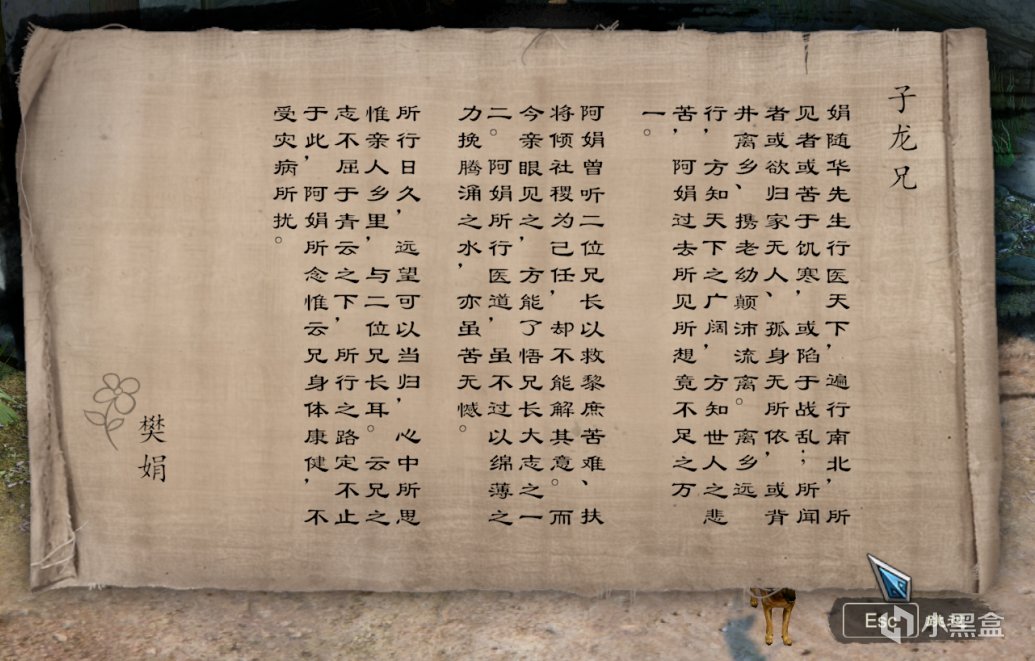 子龙兄
娟随华先生行医天下，遍行南北，所
见者或苦于饥寒，或陷于战乱；所闻
者或欲归家无人、孤身无所依，或背
井离乡、携老幼颠沛流离。离乡远
行，方知天下之广阔，方知世人之悲
苦，阿娟过去所见所想竟不足之万
一。
阿娟曾听二位兄长以救黎庶苦难、扶
将倾社稷为己任，却不能解其意。而
今亲眼见之，方能了悟兄长大志之一
二。阿娟所行医道，虽不过以绵薄之
力挽腾涌之水，亦虽苦无憾。
所行日久，远望可以当归，心中所思
惟亲人乡里，与二位兄长耳。云兄之
志不屈于青云之下，所行之路定不止
于此，阿娟所念惟云兄身体康健，不
受灾病所扰。
樊娟
Esc
小黑盒